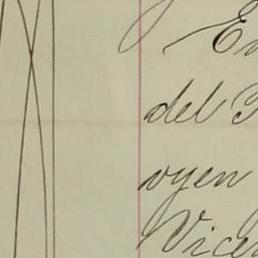 En
del
oyen
Vicen